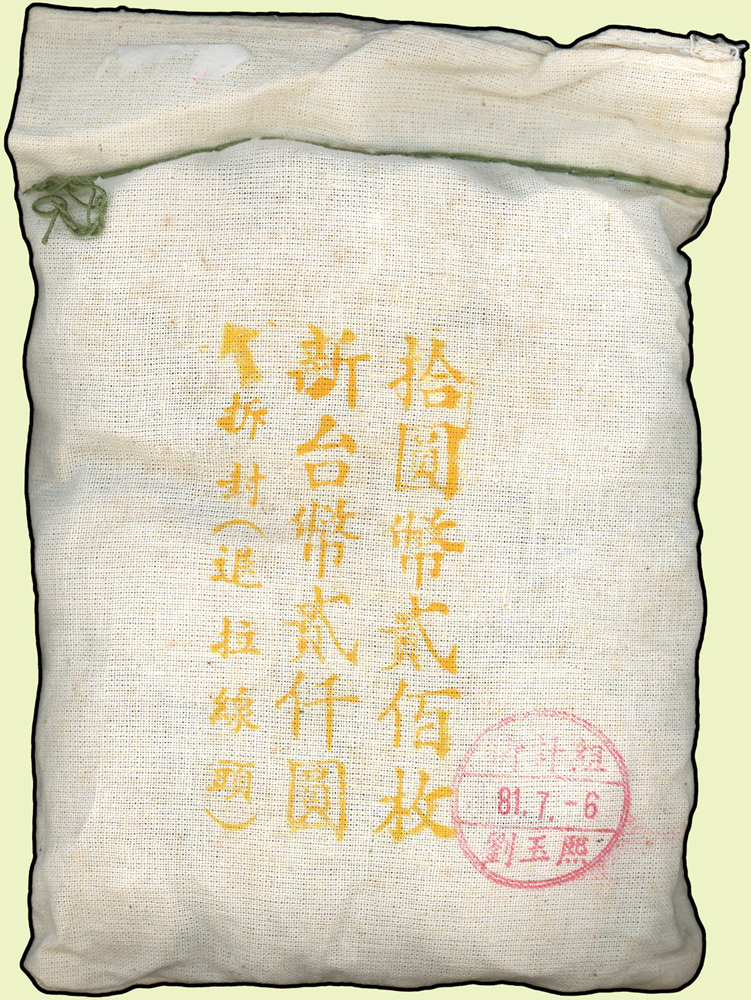 拾圓幣貳佰枚
新台幣貳仟圓
拆封(退拉線頭)
計組
81.7.-6
劉玉熙